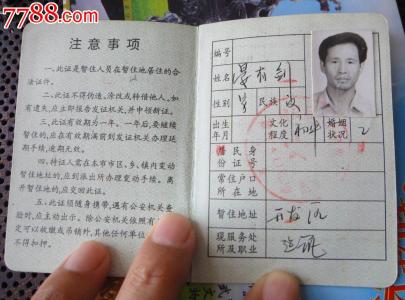 7788.com
注意事项
一、此证是暂住人员在暂住地居住的合
法证件。
二、此证不得伪造、涂改或转借他人,如
有遗失,应立即报告发证机关,并申领新证。
三、此证有效期为一年。一年后,要继续
暂住的,应在有效期满前到发证机关办理延
期手续,逾期无效。
四、持证人需在本市市区、乡、镇内变动
暂住地址的,应到派出所办理变动手续。离
开暂住地的,应交回此证。
五、此证须随身携带,遇有公安机关查
验时,应主动出示。除公安机关依照有
定可以收缴或吊销外,其他任何单位
不得扣押。
编号
姓名
性别 男 民族 汉
出生
年月
文化
程度 初中
婚姻
状况
居民身
份证号
常住户口
所在地
暂住地址 开发区
现服务处
所及职业 建筑